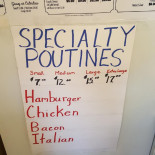 SPECIALTY
POUTINES
Small Medium Large Extra Large
$7.00 $12.00 $15.00 $17.00
Hamburger
Chicken
Bacon
Italian